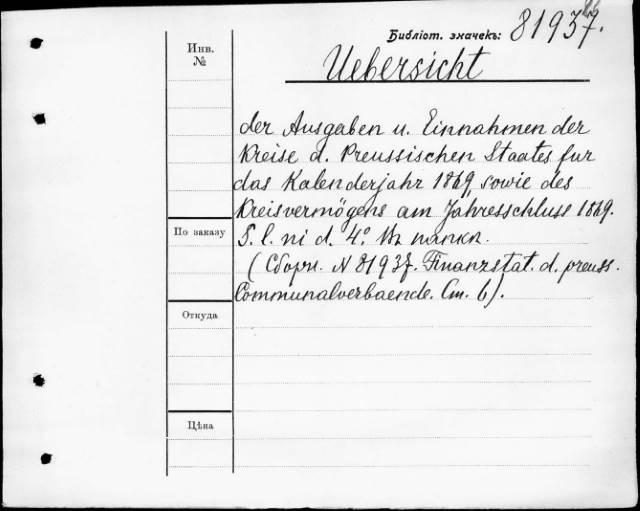 Библіот. значекъ: 81937.
Инв. №
Uebersicht
der Ausgaben u. Einnahmen der
Kreise d. Preussischen Staates fur
das Kalenderjahr 1869, sowie des
Kreisvermögens am Jahresschluss 1869.
По заказу
S. l. ni d. 4.º Въ папкѣ.
(Сборн. N 81937. Finanzstat. d. preuss.
Communalverbaende. Ст. 6).
Откуда
Цѣна